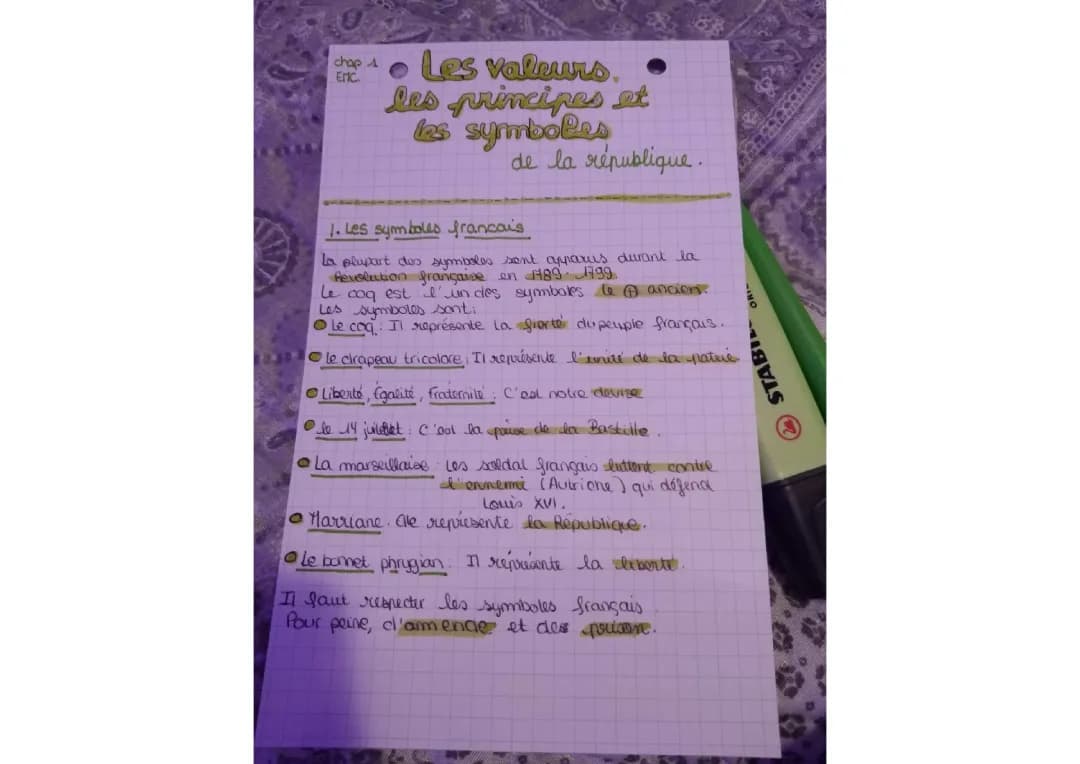 chap 1
EMC.
Les valeurs,
les principes et
les symboles
de la république.
1. Les symboles francais
La plupart des symboles sont apparus durant la
Révolution française en 1789-1799.
Le coq est l'un des symboles le ⊕ ancien.
Les symboles sont:
Le coq: Il représente la fierté du peuple français.
le drapeau tricolore: Il représente l'unité de la patrie
Liberté, Égalité, Fraternité: C'est notre devise
le 14 juillet: C'est la prise de la Bastille.
La marseillaise: Les soldat français luttent contre
l'ennemi (Autriche) qui défend
Louis XVI.
Marriane. Elle représente la République.
Le bonnet phrygian. Il représente la liberté.
Il faut respecter les symboles français
Pour peine, d'amende et des prison.
STABILO